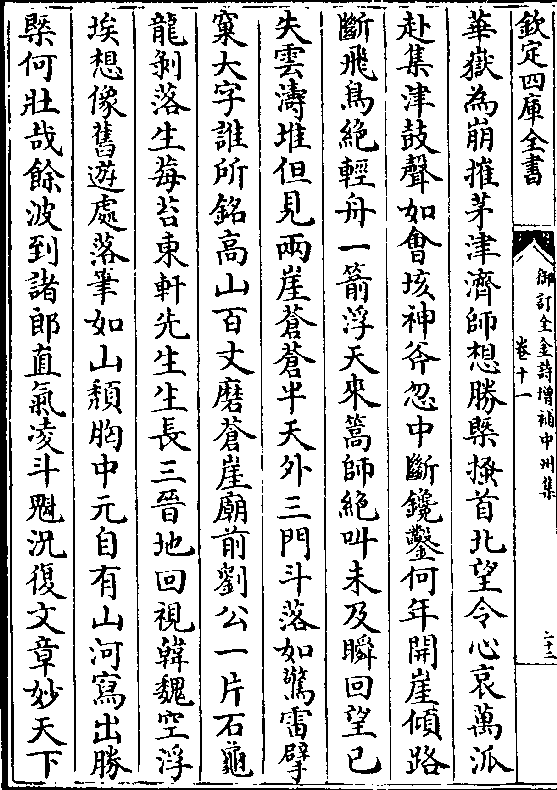 欽定四庫全書
御訂全金詩增補中州集
卷十一
二十三
華嶽為崩摧茅津濟師想勝槩搔首北望令心哀萬派
赴集津鼓聲如會垓神斧忽中斷鑱鑿何年開崖傾路
斷飛鳥絕輕舟一箭浮天來篙師絕叫未及瞬回望已
失雲濤堆但見兩崖蒼蒼半天外三門斗落如驚雷擘
窠大字誰所銘高山百丈磨蒼崖廟前劉公一片石龜
龍剝落生莓苔東軒先生生長三晉地回視韓魏空浮
埃想像舊遊處落筆如山頹胸中元自有山河寫出勝
槩何壯哉餘波到諸郎直氣凌斗魁況復文章妙天下